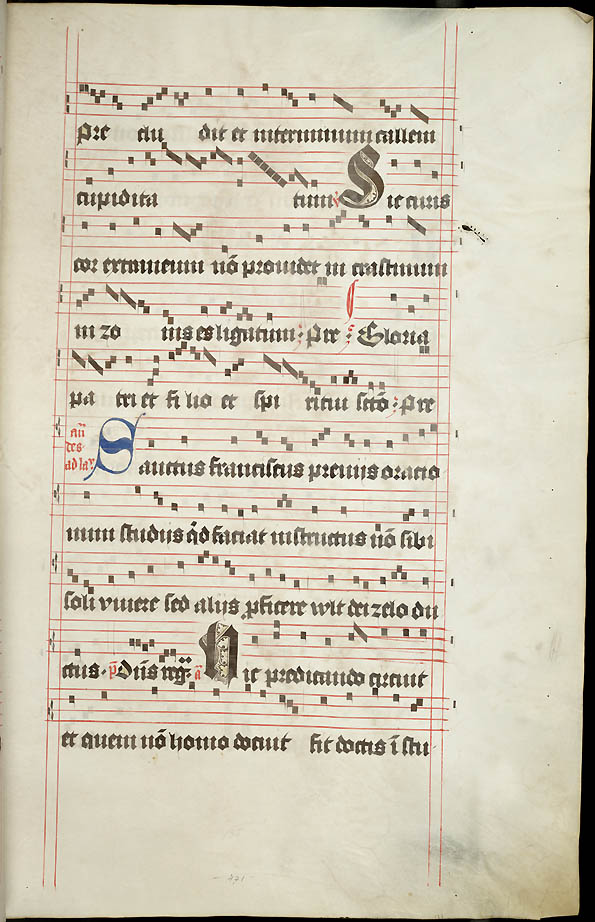 pre clu dit et interminum callem
cupidita tum ℣ Sic curis
cor extraneum nō prouidet in crastinum
in zo nis es ligatum : Pre : Gloria
pa tri et fi lio et spi ritui scō : Pre
an̄
tes
ad la᷒ Sanctus franciscus preuijs oracio
num studijs qd faciat instructus nō sibi
soli viuere sed alijs ꝓficere wlt dei zelo du
ctus · p̄ Dn̄s reg · a᷒ Hic predicando circuit
et quem nō homo docuit fit doctis ī stu-